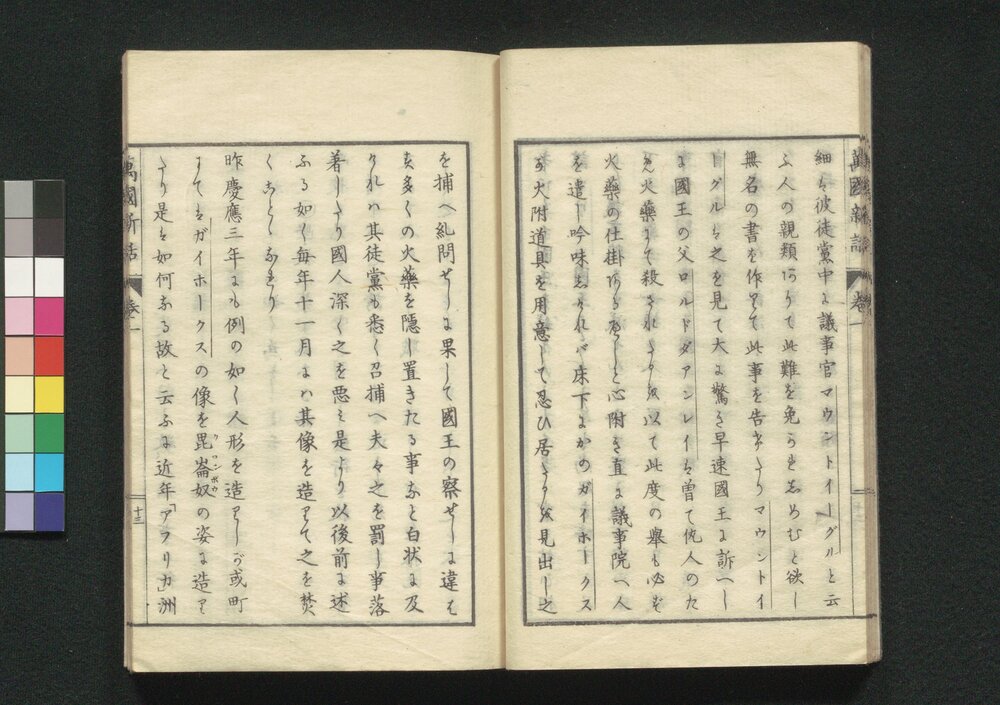 萬國新話 卷一
細ハ彼徒黨中ニ議事官マウントイーグルと云
ふ人の親類ありて此難を免らせしめむと欲し
無名の書を作りて此事を告げたりマウントイ
ーグルハ之を見て大に驚き早速國王に訴へし
に國王の父ロルドダアンレイハ曽て仇人のた
め火藥にて殺されたりしを以て此度の舉も必ず
火藥の仕掛あるべしと心附き直に議事院へ人
を遣し吟味しければ床下にかのガイホークス
が火附道具を用意して忍ひ居たりしを見出し之
を捕へ糺問せしに果して國王の察せしに違はず
多くの火藥を隱し置きたる事など白状に及
ければ其徒黨も悉く召捕へ夫々之を罰し事落
着したり國人深く之を悪ミ是より以後前に述
ふる如く毎年十一月にハ其像を造りて之を焚
くことゝなれり
昨慶應三年にも例の如く人形を造りしが或町
にてハガイホークスの像を毘崙奴の姿に造り
たり是ハ如何なる故と云ふに近年「アフリカ」洲
クロンボウ
萬國新話 卷一
十三